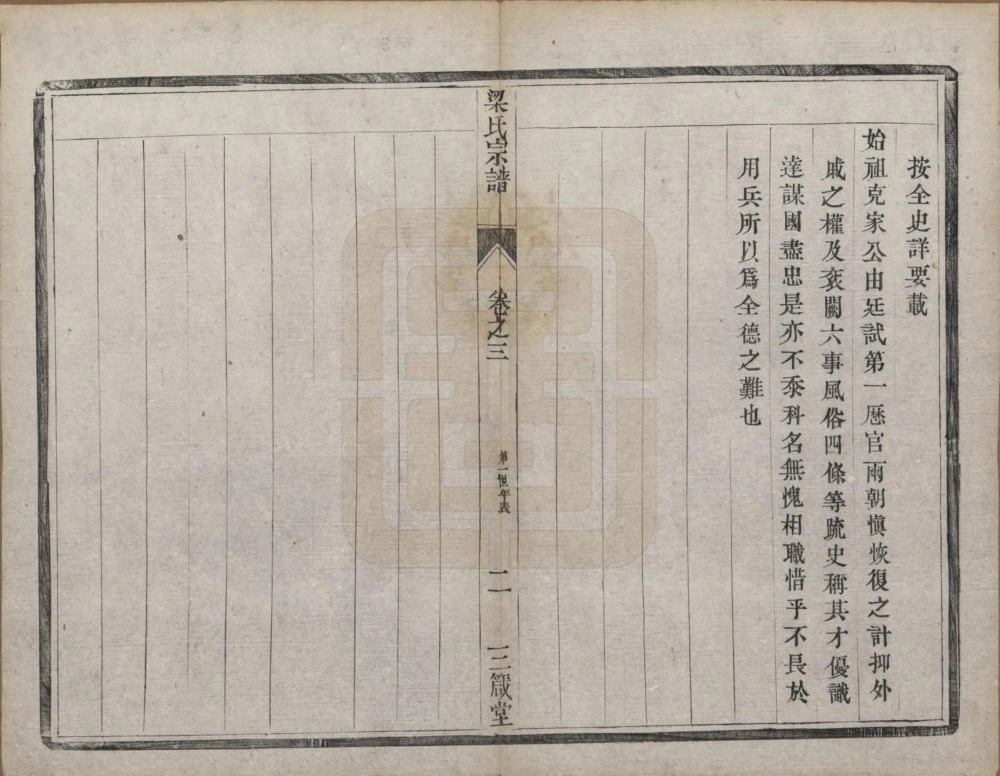 按全史詳要載
始祖克家公由廷試第一歷官兩朝慎恢復之計抑外
戚之權及袞闕六事風俗四條等疏史稱其才優識
達謀國盡忠是亦不忝科名無愧相職惜乎不長於
用兵所以為全德之難也
梁氏宗譜
卷之三
第一世年表
二
三箴堂